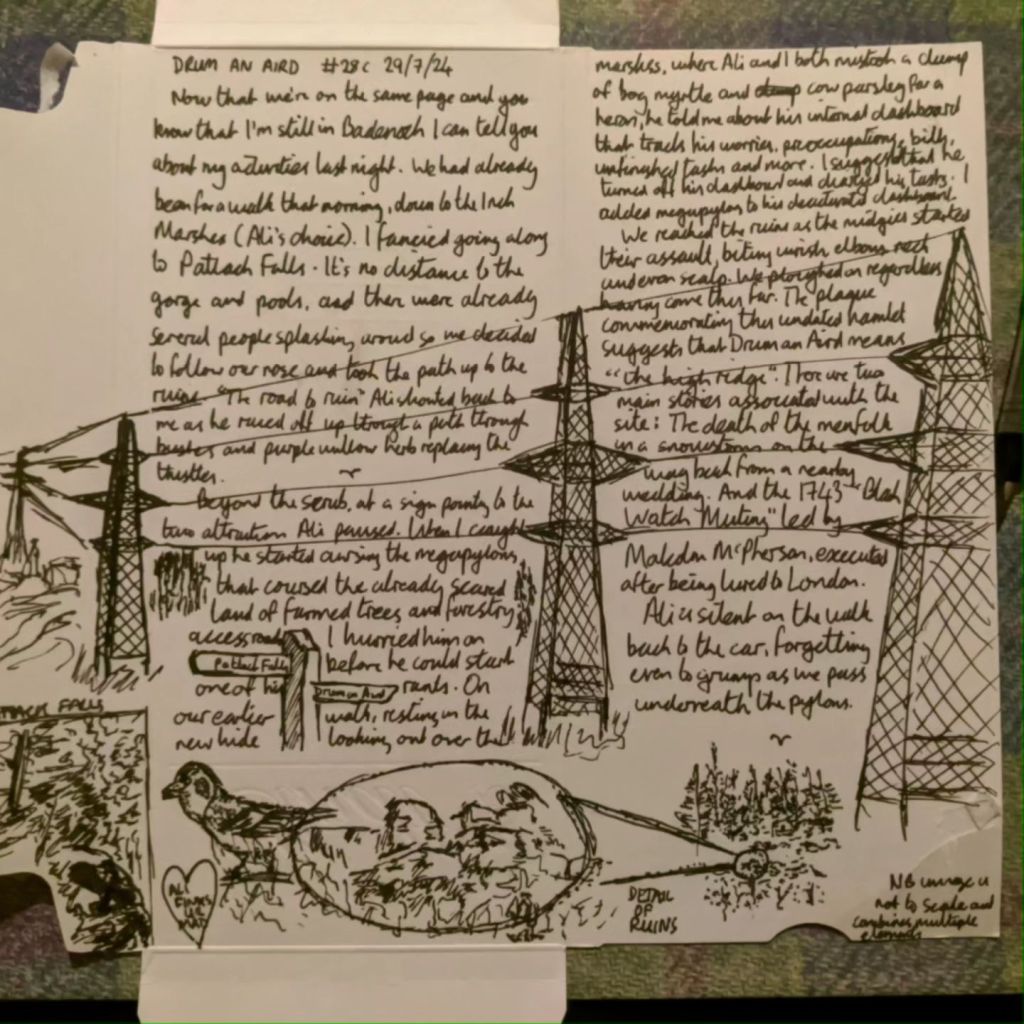 DRUM AN AIRD #28c 29/7/24
Now that we're on the same page and you
know that I'm still in Badenoch I can tell you
about my activities last night. We had already
been for a walk that morning, down to the Inch
Marshes (Ali's choice). I fancied going along
to Pattack Falls. It's no distance to the
gorge and pools, and there were already
several people splashing around so we decided
to follow our nose and took the path up to the
ruins. "The road to ruin" Ali shouted back to
me as he raced off up through a path through
bushes and purple willow herb replacing the
thistles.
Beyond the scrub, at a sign pointing to the
two attraction Ali paused. When I caught
up he started cursing the megapylons,
that coursed the already scarred
land of farmed trees and forestry
access roads. I hurried him on
before he could start
one of his rants. On
our earlier walk, resting in the
new hide looking out over the
Pattack Falls
Drum an Aird
marshes, where Ali and I both mistook a clump
of bog myrtle and cow parsley for a
heron, he told me about his internal dashboard
that tracks his worries, preoccupations, bills,
unfinished tasks and more. I suggest that he
turned off his dashboard and cleared his tasks. I
added megapylon to his deactivated dashboard.
We reached the ruins as the midgies started
their assault, biting wrists, elbows neck
and even scalp. We ploughed on regardless
having come this far. The plaque
commemorating this undated hamlet
suggests that Drum an Aird means
"the high ridge". There are two
main stories associated with the
site: The death of the menfolk
in a snowstorm on the
way back from a nearby
wedding. And the 1743 "Black
Watch Mutiny" led by
Malcolm McPherson, executed
after being lured to London.
Ali is silent on the walk
back to the car, forgetting
even to grump as we pass
underneath the pylons.
FALLS
ALI
DETAIL
OF
RUINS
NB image is
not to scale and
combines multiple
elements